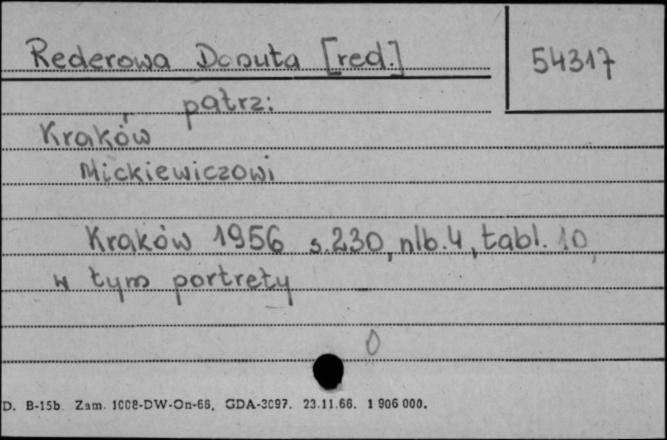 Rederowa Danuta [red.]
54317
patrz:
Kraków
Mickiewiczowi
Kraków 1956 s.230, nlb.4, tabl. 10,
w tym portrety
0
D. B-15b. Zam. 1008-DW-On-66, GDA-3097. 23.11.66. 1 906 000.